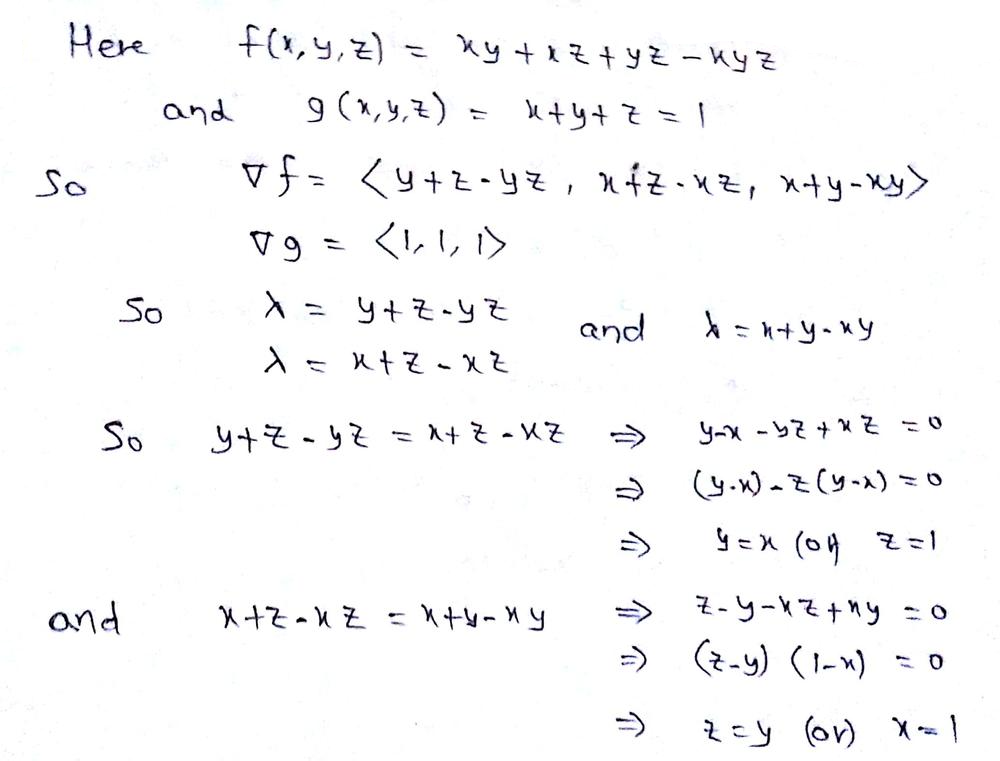 Here f(x,y,z) = xy + xz + yz - xyz
and g(x,y,z) = x+y+z = 1
So ∇f = <y+z-yz, x+z-xz, x+y-xy>
∇g = <1, 1, 1>
So λ = y+z-yz and λ = x+y-xy
λ = x+z-xz
So y+z-yz = x+z-xz ⇒ y-x-yz+xz = 0
⇒ (y-x)-z(y-x) = 0
⇒ y=x (or) z=1
and x+z-xz = x+y-xy ⇒ z-y-xz+xy = 0
⇒ (z-y) (1-x) = 0
⇒ z=y (or) x=1